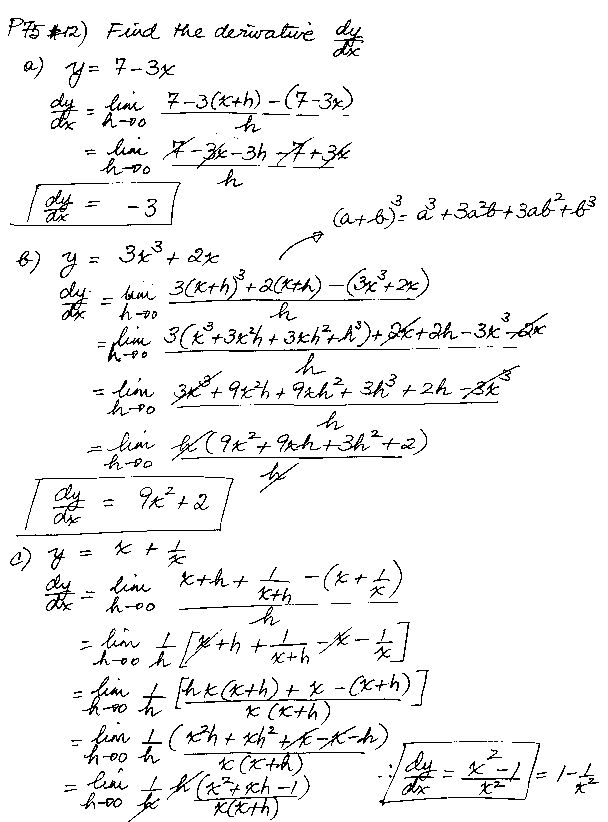 P75 #12) Find the derivative dy/dx
a) y = 7-3x
dy/dx = lim h→0 (7-3(x+h)-(7-3x))/h
= lim h→0 (7-3x-3h-7+3x)/h
dy/dx = -3
(a+b)³ = a³+3a²b+3ab²+b³
b) y = 3x³+2x
dy/dx = lim h→0 (3(x+h)³+2(x+h)-(3x³+2x))/h
= lim h→0 (3(x³+3x²h+3xh²+h³)+2x+2h-3x³-2x)/h
= lim h→0 (3x³+9x²h+9xh²+3h³+2h-3x³)/h
= lim h→0 h(9x²+9xh+3h²+2)/h
dy/dx = 9x²+2
c) y = x + 1/x
dy/dx = lim h→0 (x+h+1/(x+h)-(x+1/x))/h
= lim h→0 1/h [x+h+1/(x+h)-x-1/x]
= lim h→0 1/h [hx(x+h)+x-(x+h)]/(x(x+h))
= lim h→0 1/h (x²h+xh²+x-x-h)/(x(x+h))
= lim h→0 1/h h(x²+xh-1)/(x(x+h))
∴ dy/dx = (x²-1)/x² = 1-1/x²